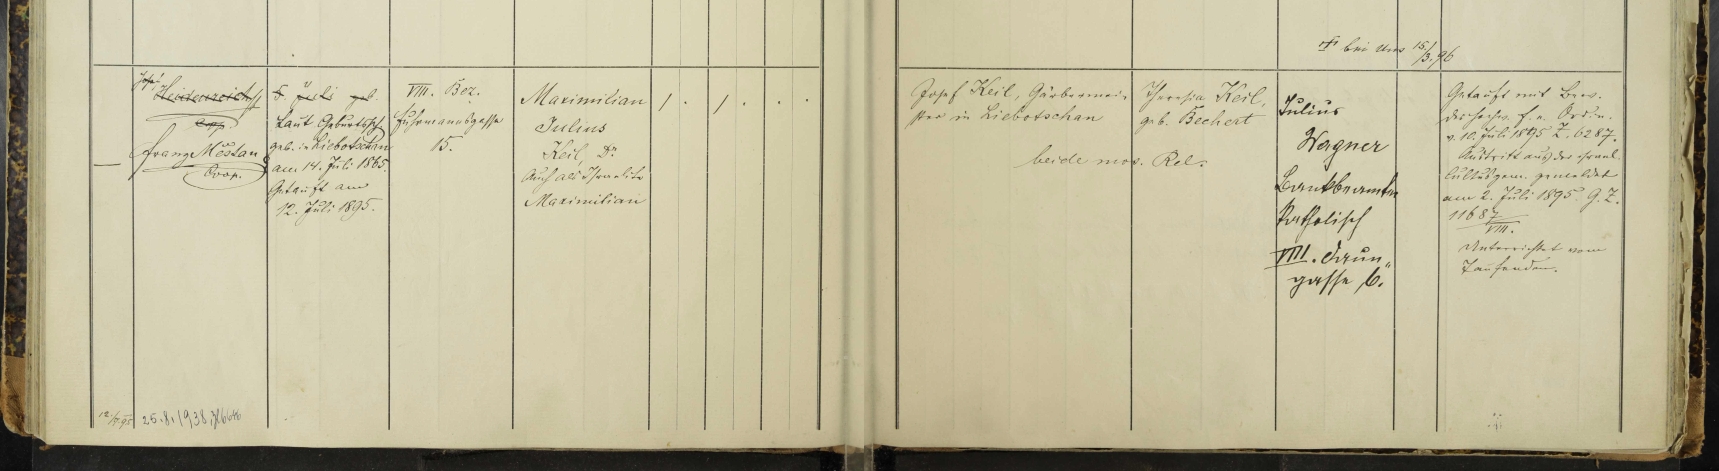 ✝ bei uns 15/3 96
Josef
Heidenreich
Coop.
Franz Mĕstan
Coop.
5. Juli geb.
Laut Geburtssch.
geb. in Liebotschan
am 14. Juli 1865.
Getauft am
12. Juli 1895.
VIII. Bez.
Fuhrmannsgasse
15.
Maximilian
Julius
Keil, Dr.
Auch als Israelite
Maximilian
1 . 1 . . .
Josef Keil, Gärbermei-
ster in Liebotschan
Theresia Keil,
geb. Bechert
beide mos. Rel.
Julius
Wagner
Bankbeamter
Katholisch
VIII. Laun-
gasse 6.
Getauft mit Bew.
des hochw. f. e. Ordin.
v. 10. Juli 1895 Z. 6287.
Austritt aus der israel.
Cultusgem. gemeldet
am 2. Juli 1895. G. Z.
11687
VIII.
Unterrichtet vom
Taufenden.
12./7. 95
25.8.1938